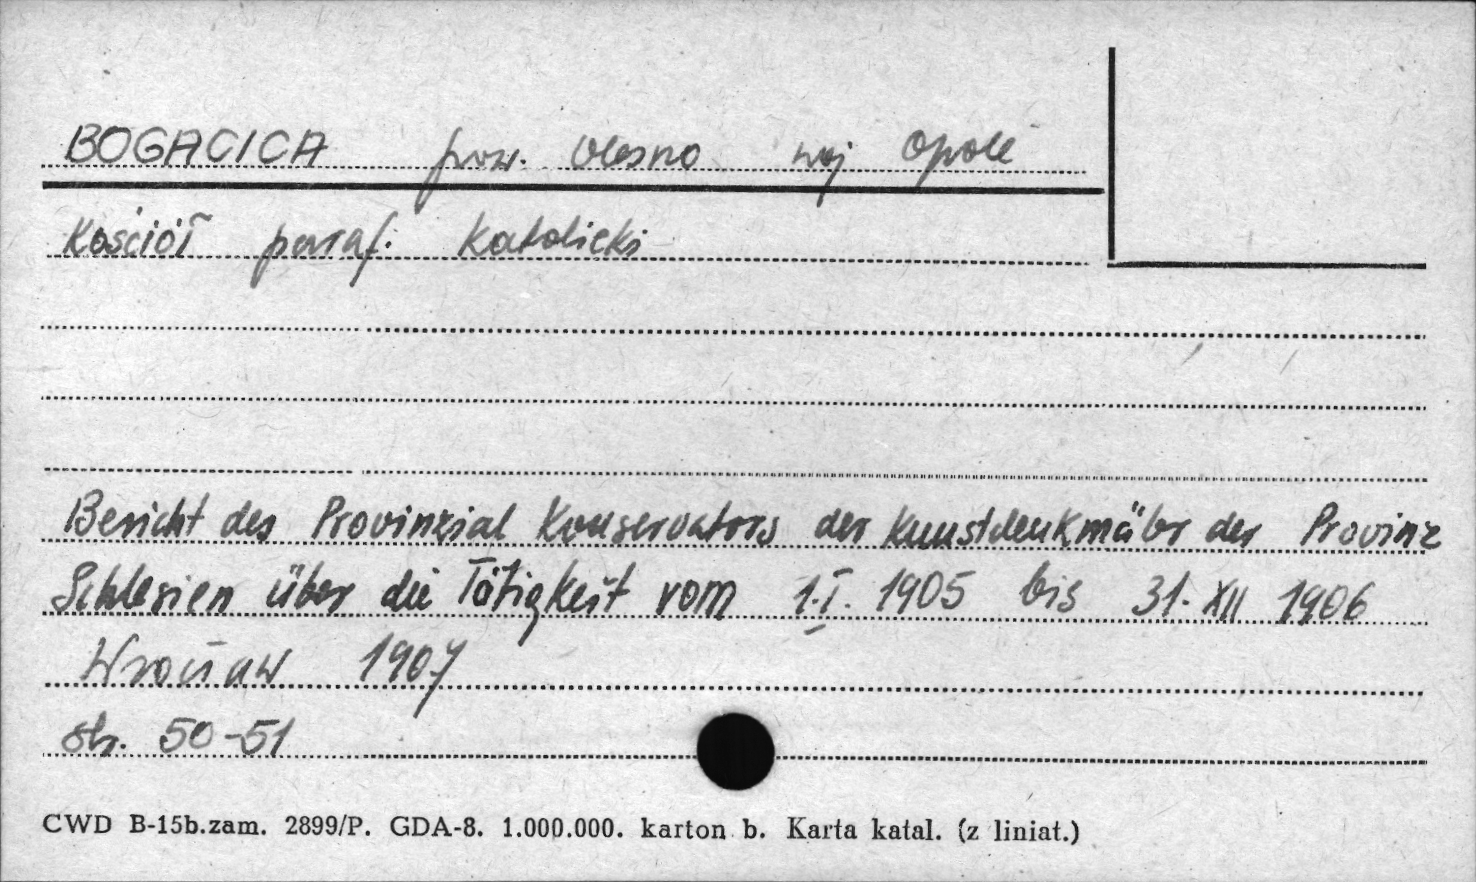 BOGACICA pow. Olesno woj Opole
Kościół paraf. Katolicki
Bericht des Provinzial Konservators der Kunstdenkmäler der Provinz
Schlesien über die Tätigkeit vom 1.I. 1905 bis 31. XII 1906
Wrocław 1907
str. 50-51
CWD B-15b.zam. 2899/P. GDA-8. 1.000.000. karton b. Karta katal. (z liniat.)